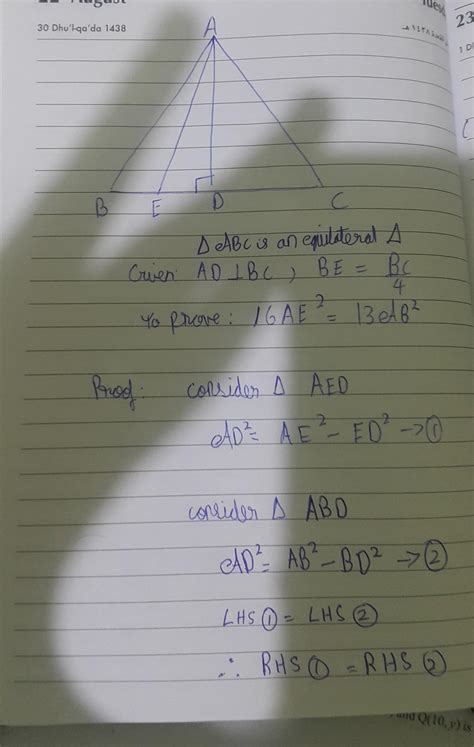 22 August
30 Dhu'l-qa'da 1438
23
A
B E D C
Δ ABC is an equilateral Δ
Given: AD ⊥ BC , BE = BC/4
To prove: 16AE² = 13AB²
Proof: consider Δ AED
AD² = AE² − ED² → ①
consider Δ ABD
AD² = AB² − BD² → ②
LHS ① = LHS ②
∴ RHS ① = RHS ②
and Q(10, y) is